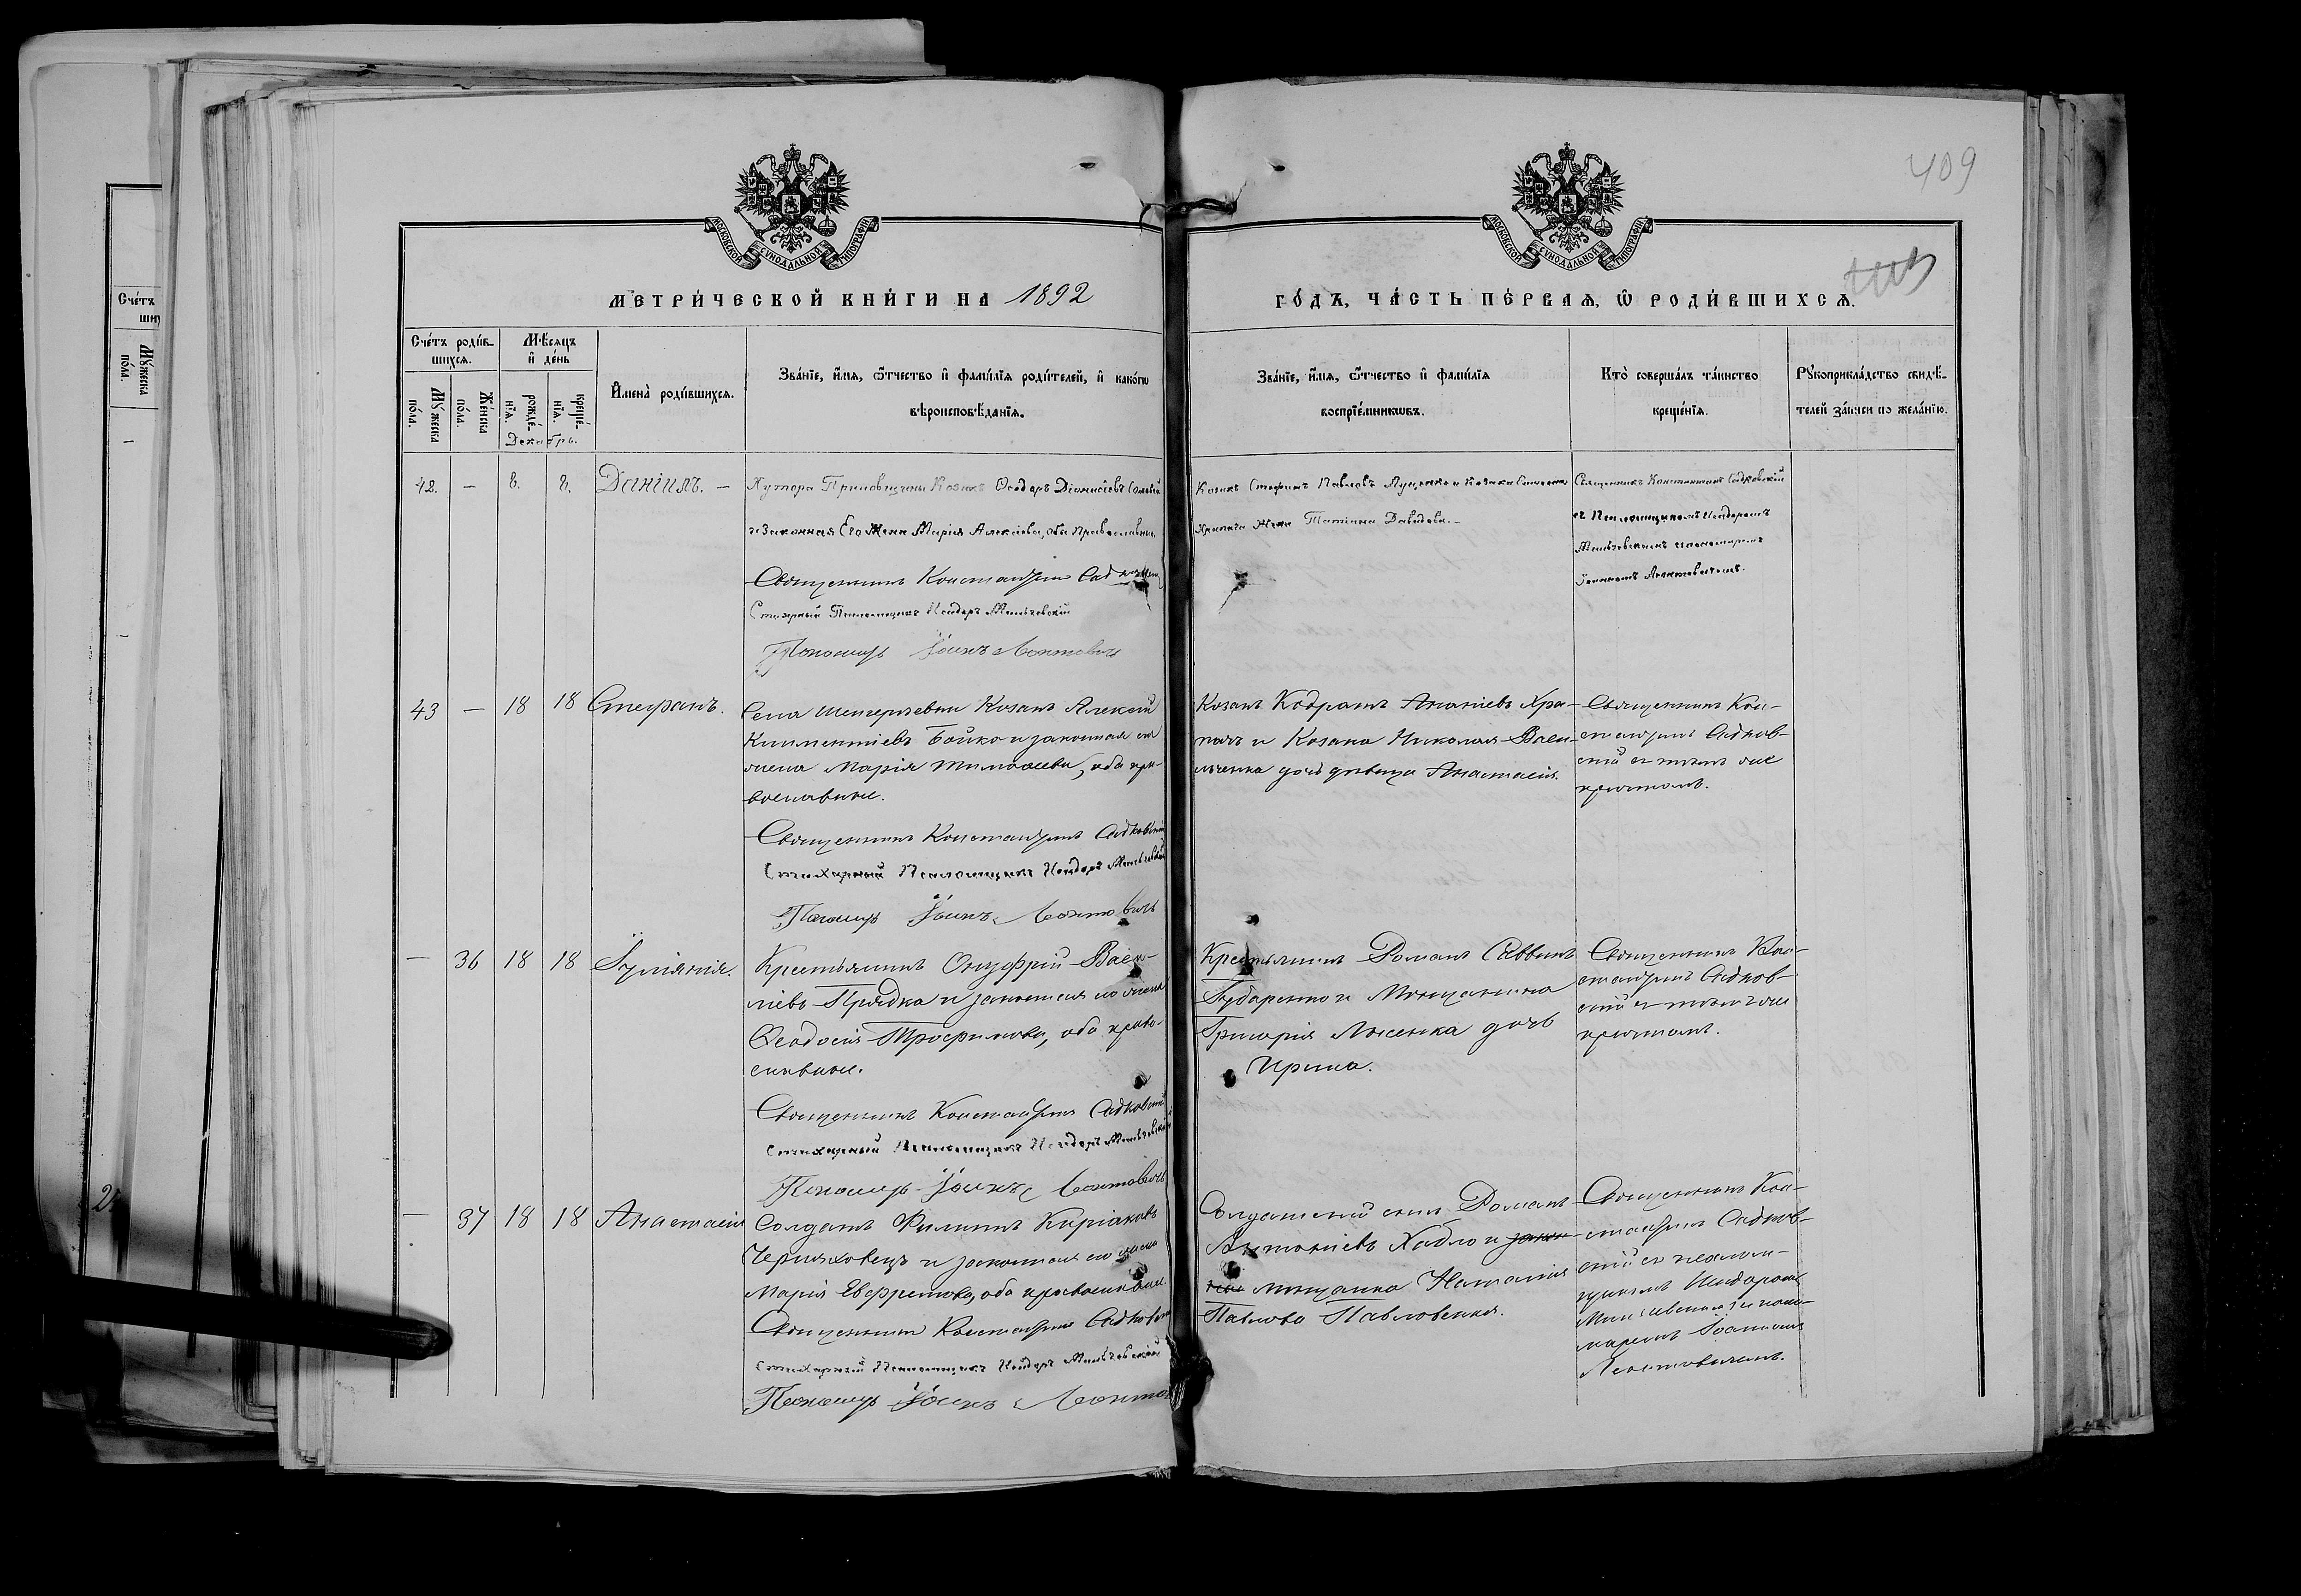 409
МОСКОВСКОЙ СУНОДАЛЬНОЙ ТИПОГРАФІИ
МОСКОВСКОЙ СУНОДАЛЬНОЙ ТИПОГРАФІИ
МЕТРИ́ЧЕСКОЙ КНИ́ГИ НА 1892
ГО́ДЪ, ЧА́СТЬ ПЕ́РВАЯ, Ѡ РОДИ́ВШИХСЯ.
Сче́тъ роди́в-
шихся.
Му́жеска по́ла.
Же́нска по́ла.
Мѣ́сяцъ
и де́нь
рожде́-
нїя.
креще́-
нїя.
Декабрь.
И҆мена̀ роди́вшихся.
Зва́нїе, и҆́мя, ѻ҆́тчество и҆ фами́лїя роди́телей, и҆ како́гѡ
вѣроисповѣ́данїя.
Зва́нїе, и҆́мя, ѻ҆́тчество и҆ фами́лїя
воспрїе́мникѡвъ.
Кто̀ соверша́лъ та́инство
креще́нїя.
Рꙋкоприкла́дство свидѣ́-
телей за́писи по жела́нїю.
Сче́тъ
Му́жеска
по́ла.
42. — 8. 8. Даніилъ. —
Хутора Козакъ Ѳеодоръ Діонисіевъ
и законная Его Жена Марія Алексіева, оба православные.
Священникъ Константинъ
Стихарный Псаломщикъ Исидоръ
Пономарь Іоаннъ Леонтовичъ
Козакъ Стефанъ Павловъ и Козака
жена Татіана Давидова. —
Священникъ Константинъ Садковскій
съ Псаломщикомъ Исидоромъ
и пономаремъ
Іоанномъ Леонтовичемъ.
43 — 18 18 Стефанъ.
Села Козакъ Алексій
Климентіевъ Бойко и законная его
жена Марія Тимоѳеева, оба пра-
вославные.
Священникъ Константинъ Садковскій
Стихарный Псаломщикъ Исидоръ
Пономарь Іоаннъ Леонтовичъ
Козакъ Кодратъ Ананіевъ Хра-
пачъ и Козака Николая Васи-
льченка дочь дѣвица Анастасія.
Священникъ Кон-
стантинъ Садков-
скій съ тѣмъ же
причтомъ.
— 36 18 18 Іуліанія.
Крестьянинъ Онуфрій Васи-
ліевъ Прядка и законная его жена
Ѳеодосія Трофимова, оба право-
славные.
Священникъ Константинъ Садковскій
Стихарный Псаломщикъ Исидоръ
Пономарь Іоаннъ Леонтовичъ
Крестьянинъ Романъ Саввинъ
и Мѣщанина
Григорія Лысенка дочь
Ирина.
Священникъ Кон-
стантинъ Садков-
скій съ тѣмъ же
причтомъ.
— 37 18 18 Анастасія
Солдатъ Филиппъ Киріаковъ
Черняховецъ и законная его жена
Марія Евфремова, оба православные.
Священникъ Константинъ Садковскій
Стихарный Псаломщикъ Исидоръ
Пономарь Іоаннъ
Солдатскій сынъ Романъ
Антоніевъ Хабло и
мѣщанка Наталія
Павлова Павловская.
Священникъ Кон-
стантинъ Садков-
скій съ псалом-
щикомъ Исидоромъ
и поно-
маремъ Іоанномъ
Леонтовичемъ.